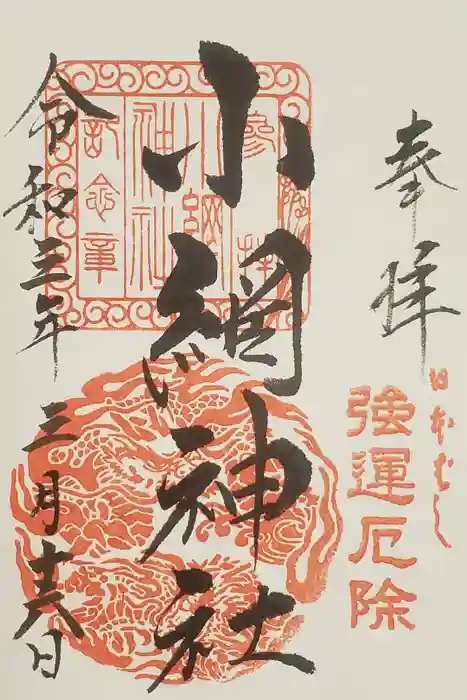 奉拝
日本ばし
強運厄除
小網神社
參拝
小網
神社
記念章
令和三年
三月十六日